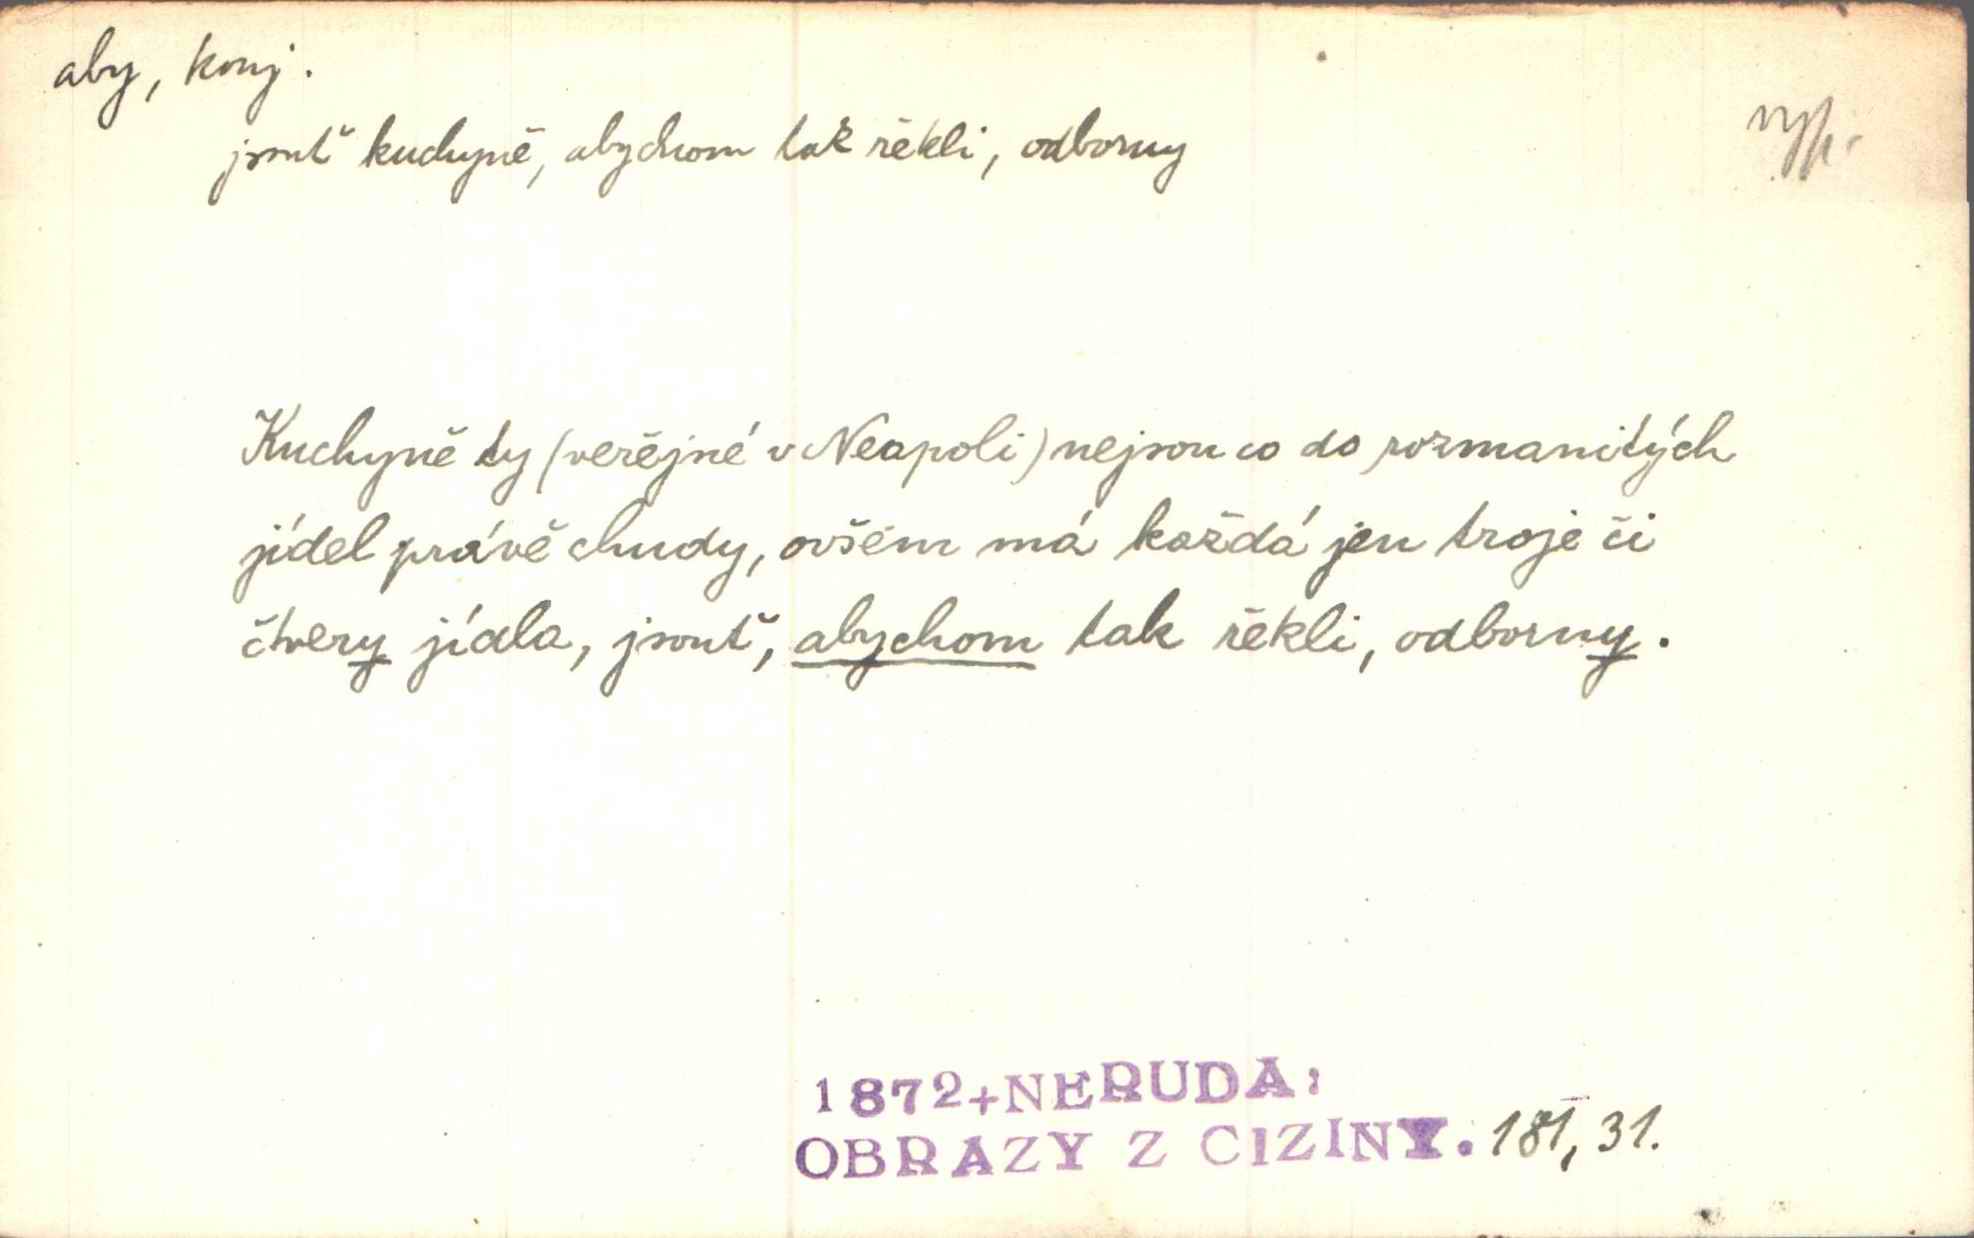 aby, konj.
jsouť kuchyně, abychom tak řékli, odborny
Kuchyně ty (veřejné v Neapoli) nejsou co do rozmanitých
jídel právě chudy, ovšem má každá jen troje či
čtvery jídla, jsouť, abychom tak řékli, odborny.
1872+NERUDA:
OBRAZY Z CIZINY. 181, 31.